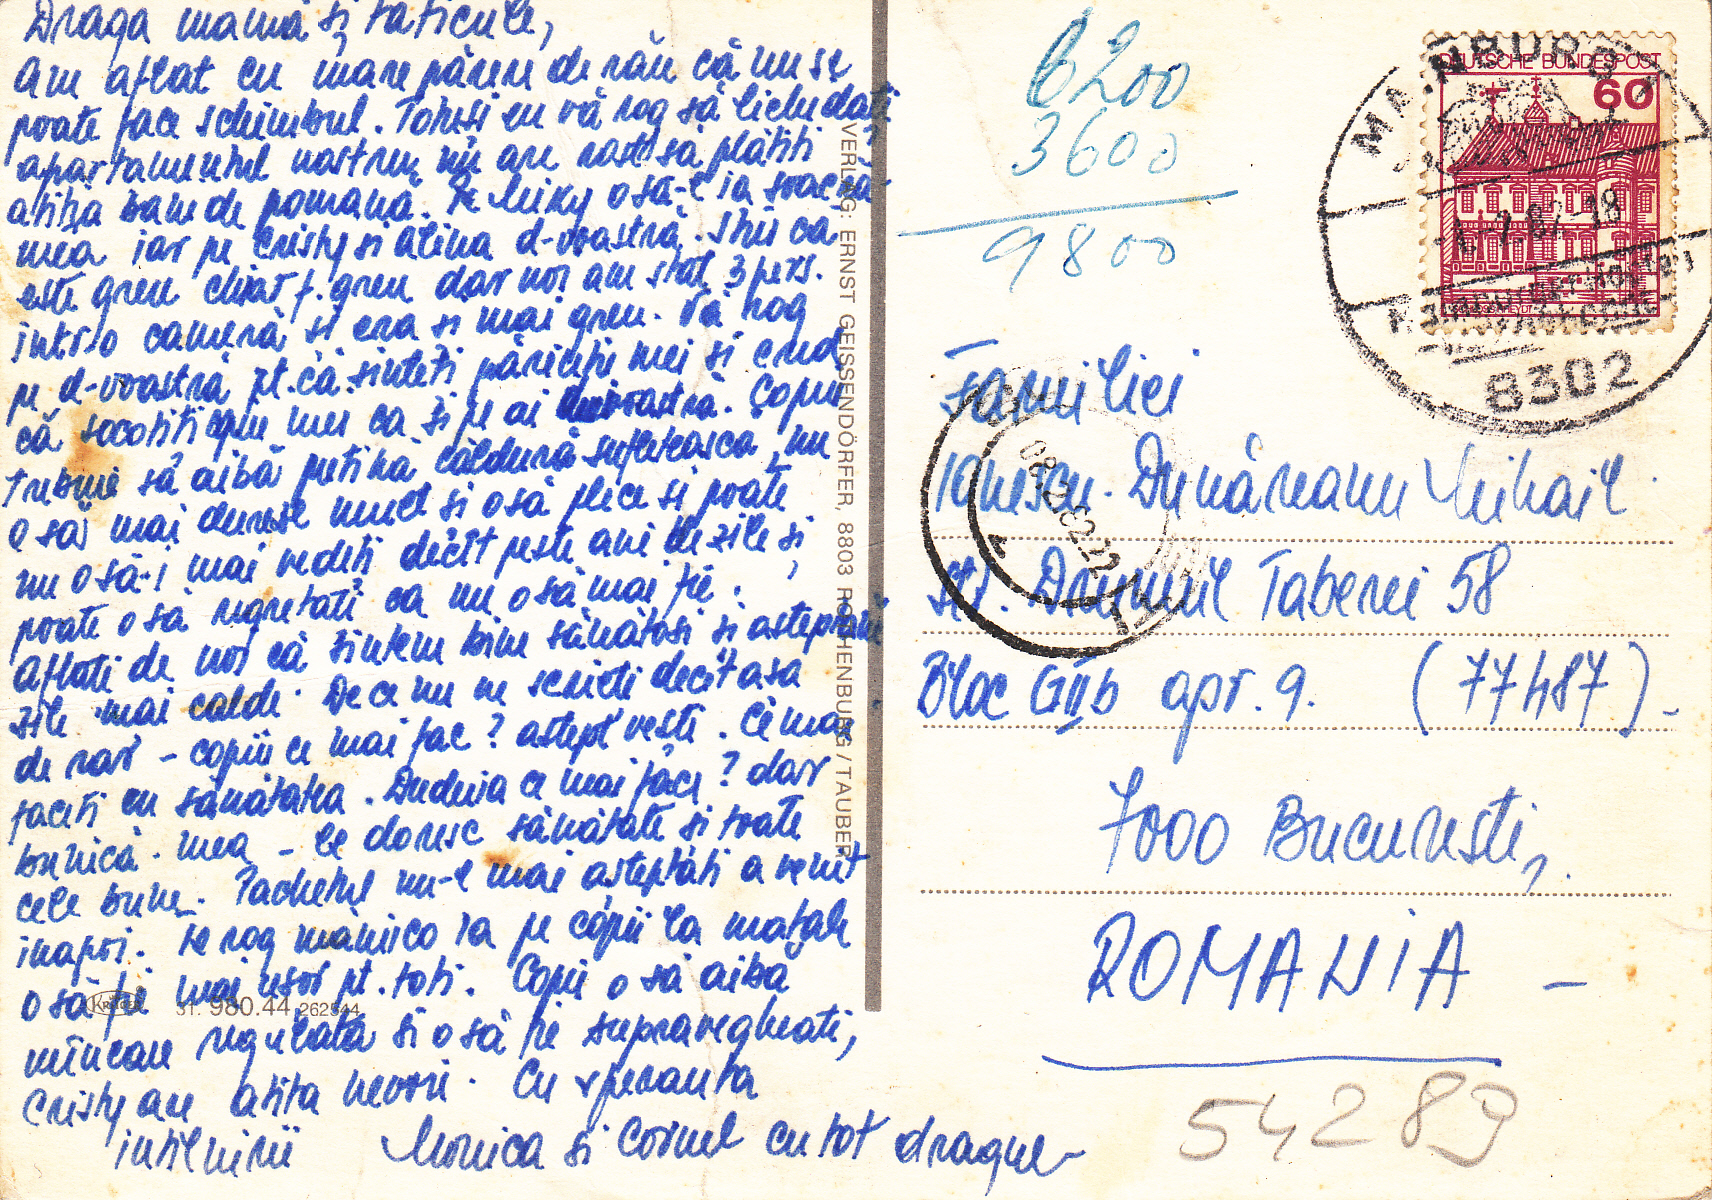 Draga mamă și taticule,
Am aflat cu mare părere de rău că nu se
poate face schimbul. Totuși eu vă rog să lichidați
apartamentul nostru nu are rost să plătiți
atîția bani de pomană. Pe Miky o să-l ia soacră
mea iar pe Cristy și Alina d-voastră. Știu că
este greu chiar f. greu dar noi am stat 3 pers.
într-o cameră și era și mai greu. Vă rog
pe d-voastră pt. că sinteți părinții mei și cred
că socotiți copiii mei ca și pe ai voastră. Copiii
trebuie să aibă puțină căldură sufletească, nu
o să mai dureze mult și o să plece și poate
nu o să-i mai vedeți decît peste ani de zile și
poate o să regretați ca nu o să mai fie.
Aflați de noi că sintem bine sănătoși și așteptăm
zile mai calde. De ce nu ne scrieți decît așa
de rar - copiii ce mai fac? aștept vești. Ce mai
faceți cu sănătatea. Duduia ce mai face? dar
bunică mea - le doresc sănătate și toate
cele bune. Pachetul nu-l mai așteptați a venit
înapoi. Te rog mămico ia pe copii la matale
o să fie mai ușor pt. toți. Copii o să aibă
mîncare regulată și o să fie supravegheați,
Cristy are atîta nevoie. Cu speranța
întîlnirii Monica și Cornel cu tot dragul
VERLAG: ERNST GEISSENDÖRFER, 8803 ROTHENBURG/TAUBER
KRÜGER 31. 980.44 262544
6200
3600
9800
DEUTSCHE BUNDESPOST
60
MAINBURG
8302
Familiei
Ionescu-Dunăreanu Mihail
Str. Drumul Taberei 58
Bloc GIIb apr. 9. (77487)-
7000 București,
ROMANIA -
54289